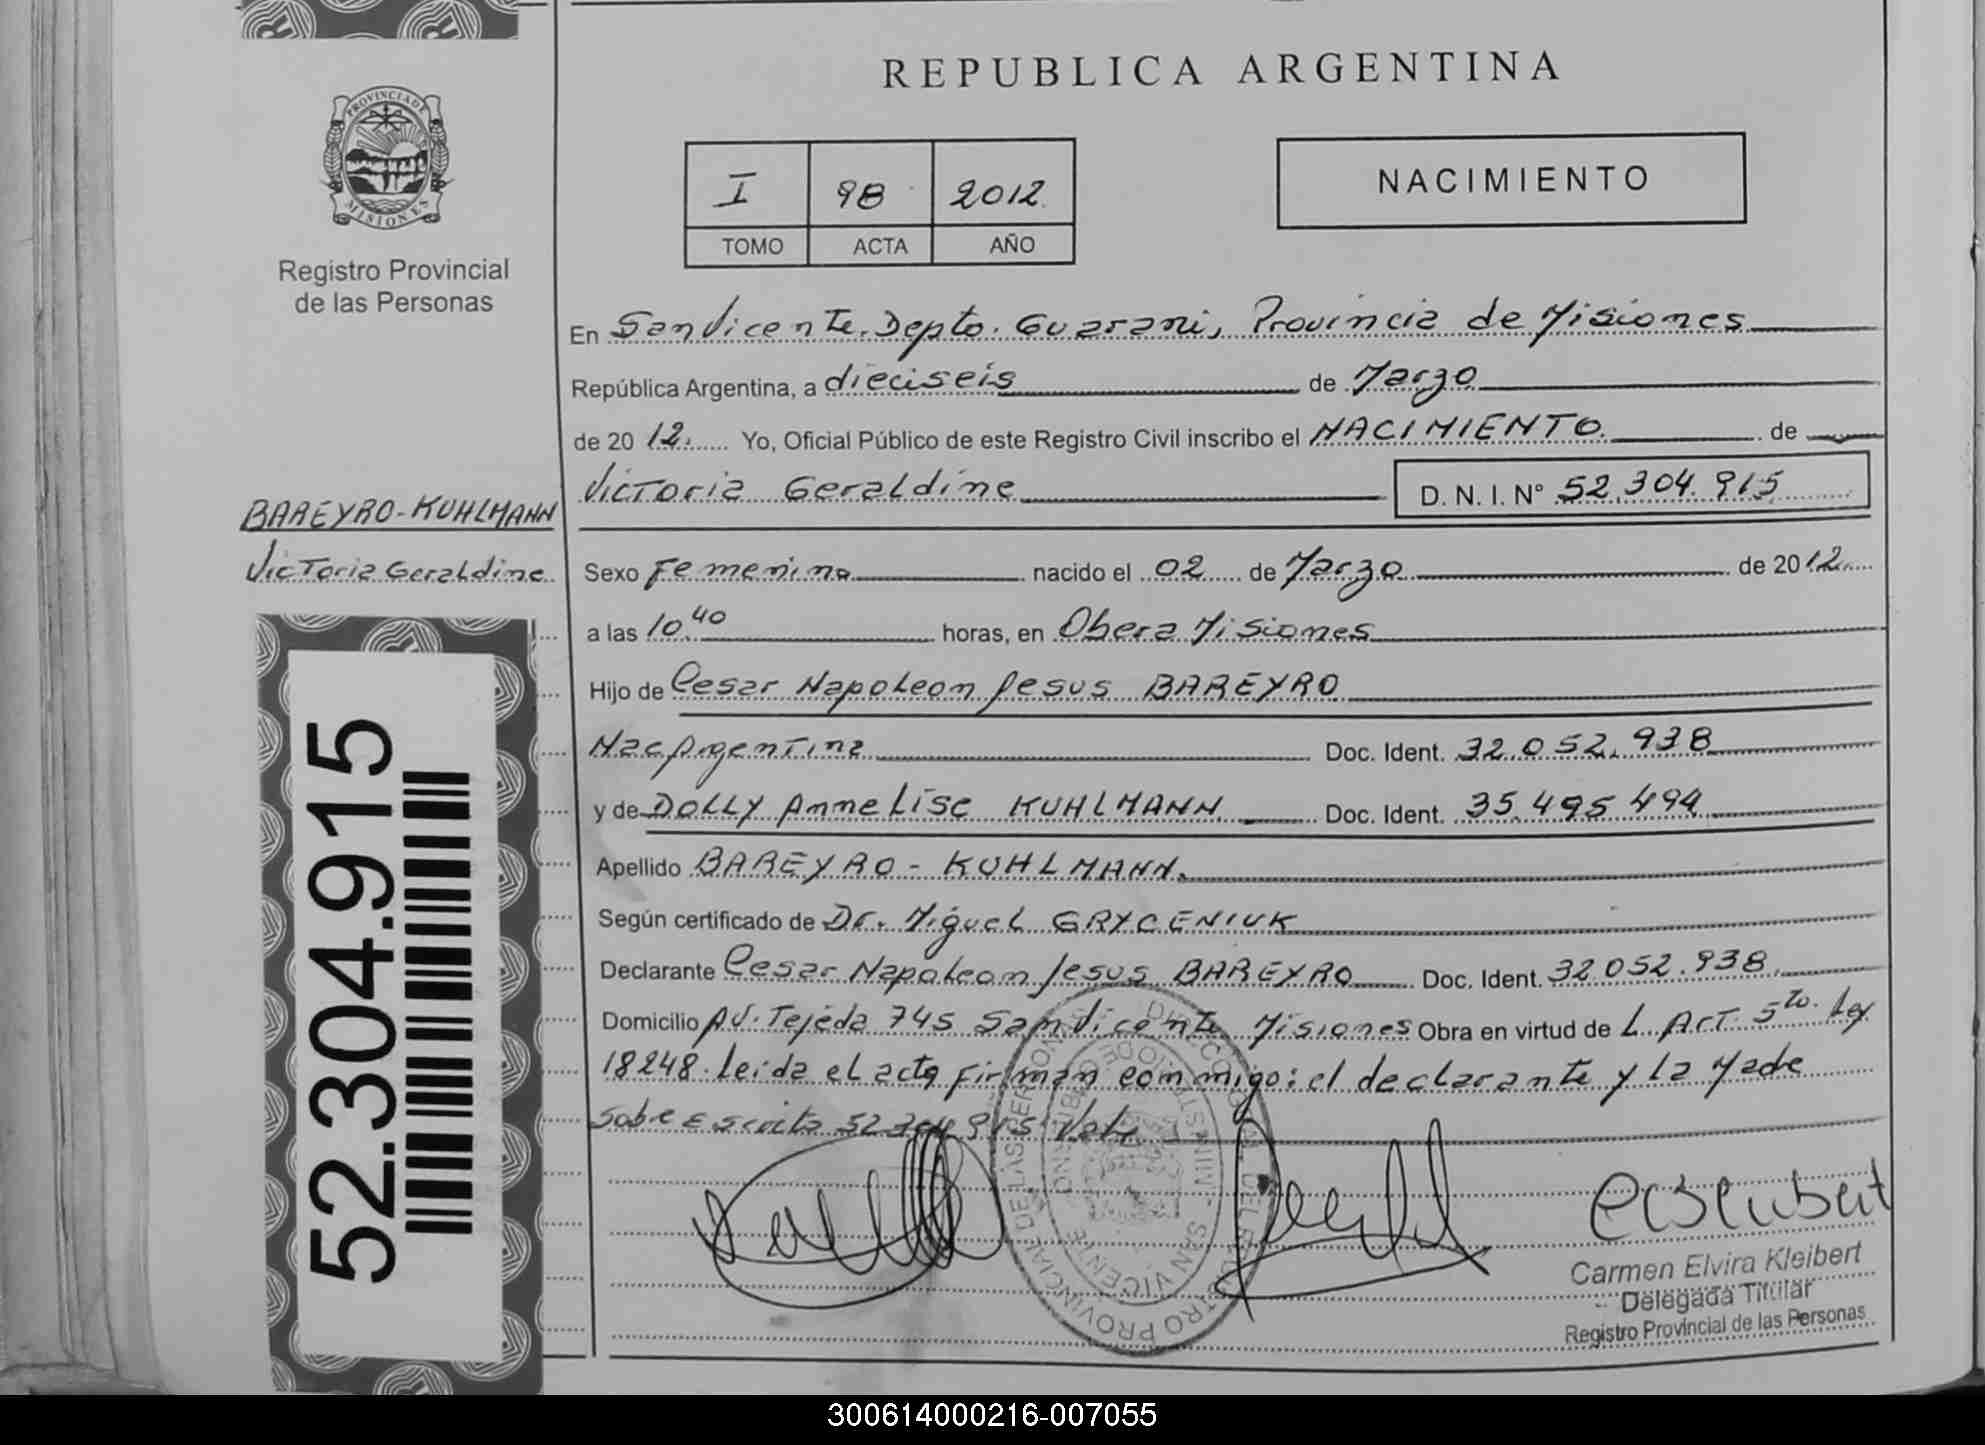 REPUBLICA ARGENTINA
PROVINCIA DE MISIONES
Registro Provincial
de las Personas
I 98 2012
TOMO ACTA AÑO
NACIMIENTO
En San Vicente. Depto. Guarani, Provincia de Misiones
República Argentina, a dieciseis de Marzo
de 20 12. Yo, Oficial Público de este Registro Civil inscribo el NACIMIENTO. de
Victoria Geraldine D. N. I. N° 52.304.915
BAREYRO-KUHLMANN
Victoria Geraldine
Sexo Femenino nacido el 02 de Marzo de 2012
a las 10 40 horas, en Obera Misiones
Hijo de Cesar Napoleon Jesus BAREYRO
Nac Argentina Doc. Ident. 32.052.938
y de DOLLY Anne Lise KUHLMANN Doc. Ident. 35.495.494
Apellido BAREYRO - KUHLMANN.
Según certificado de Dr. Miguel GRYCENIUK
Declarante Cesar Napoleon Jesus BAREYRO Doc. Ident. 32.052.938
Domicilio AV. Tejeda 745 San Vicente Misiones Obra en virtud de L. Art. 5to. Ley
18248. Leida el acta firman conmigo: el declarante y la Made
Sobre Escrito 52.304.915 Vale
52.304.915
Carmen Elvira Kleibert
Delegada Titular
Registro Provincial de las Personas
300614000216-007055